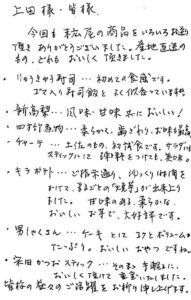 上田様・皆様
今回も松尾の商品をいろいろお送り
頂きありがとうございました。産地直送の
もの、どれもおいしく頂きました。
・りゅうきゅう寿司…初めての食感です。
ゴマ入り寿司飯とよく似合っています。
・新高梨…風味・甘味共においしい!
・四方竹…柔らかく、歯ざわり、お味も最高
・チャーテ…土佐のもの、初試食です。サラダに
スティックにして 味をつけても、美味。
・キラポテト…ご指示通り、ゆっくり時間を
かけて、まるごとの「大学芋」が出来上り
ました。甘味のある、柔らかな
おいしいお芋で、大好評です。
・栗しゃくさん…ケーキとして コクとボリューム
たっぷり。おいしいおやつですね。
・宗田かつおスティック…そのまま 手軽に、
おいしく頂けて 重宝いたしました。
皆様の益々のご活躍をお祈り申し上げます。